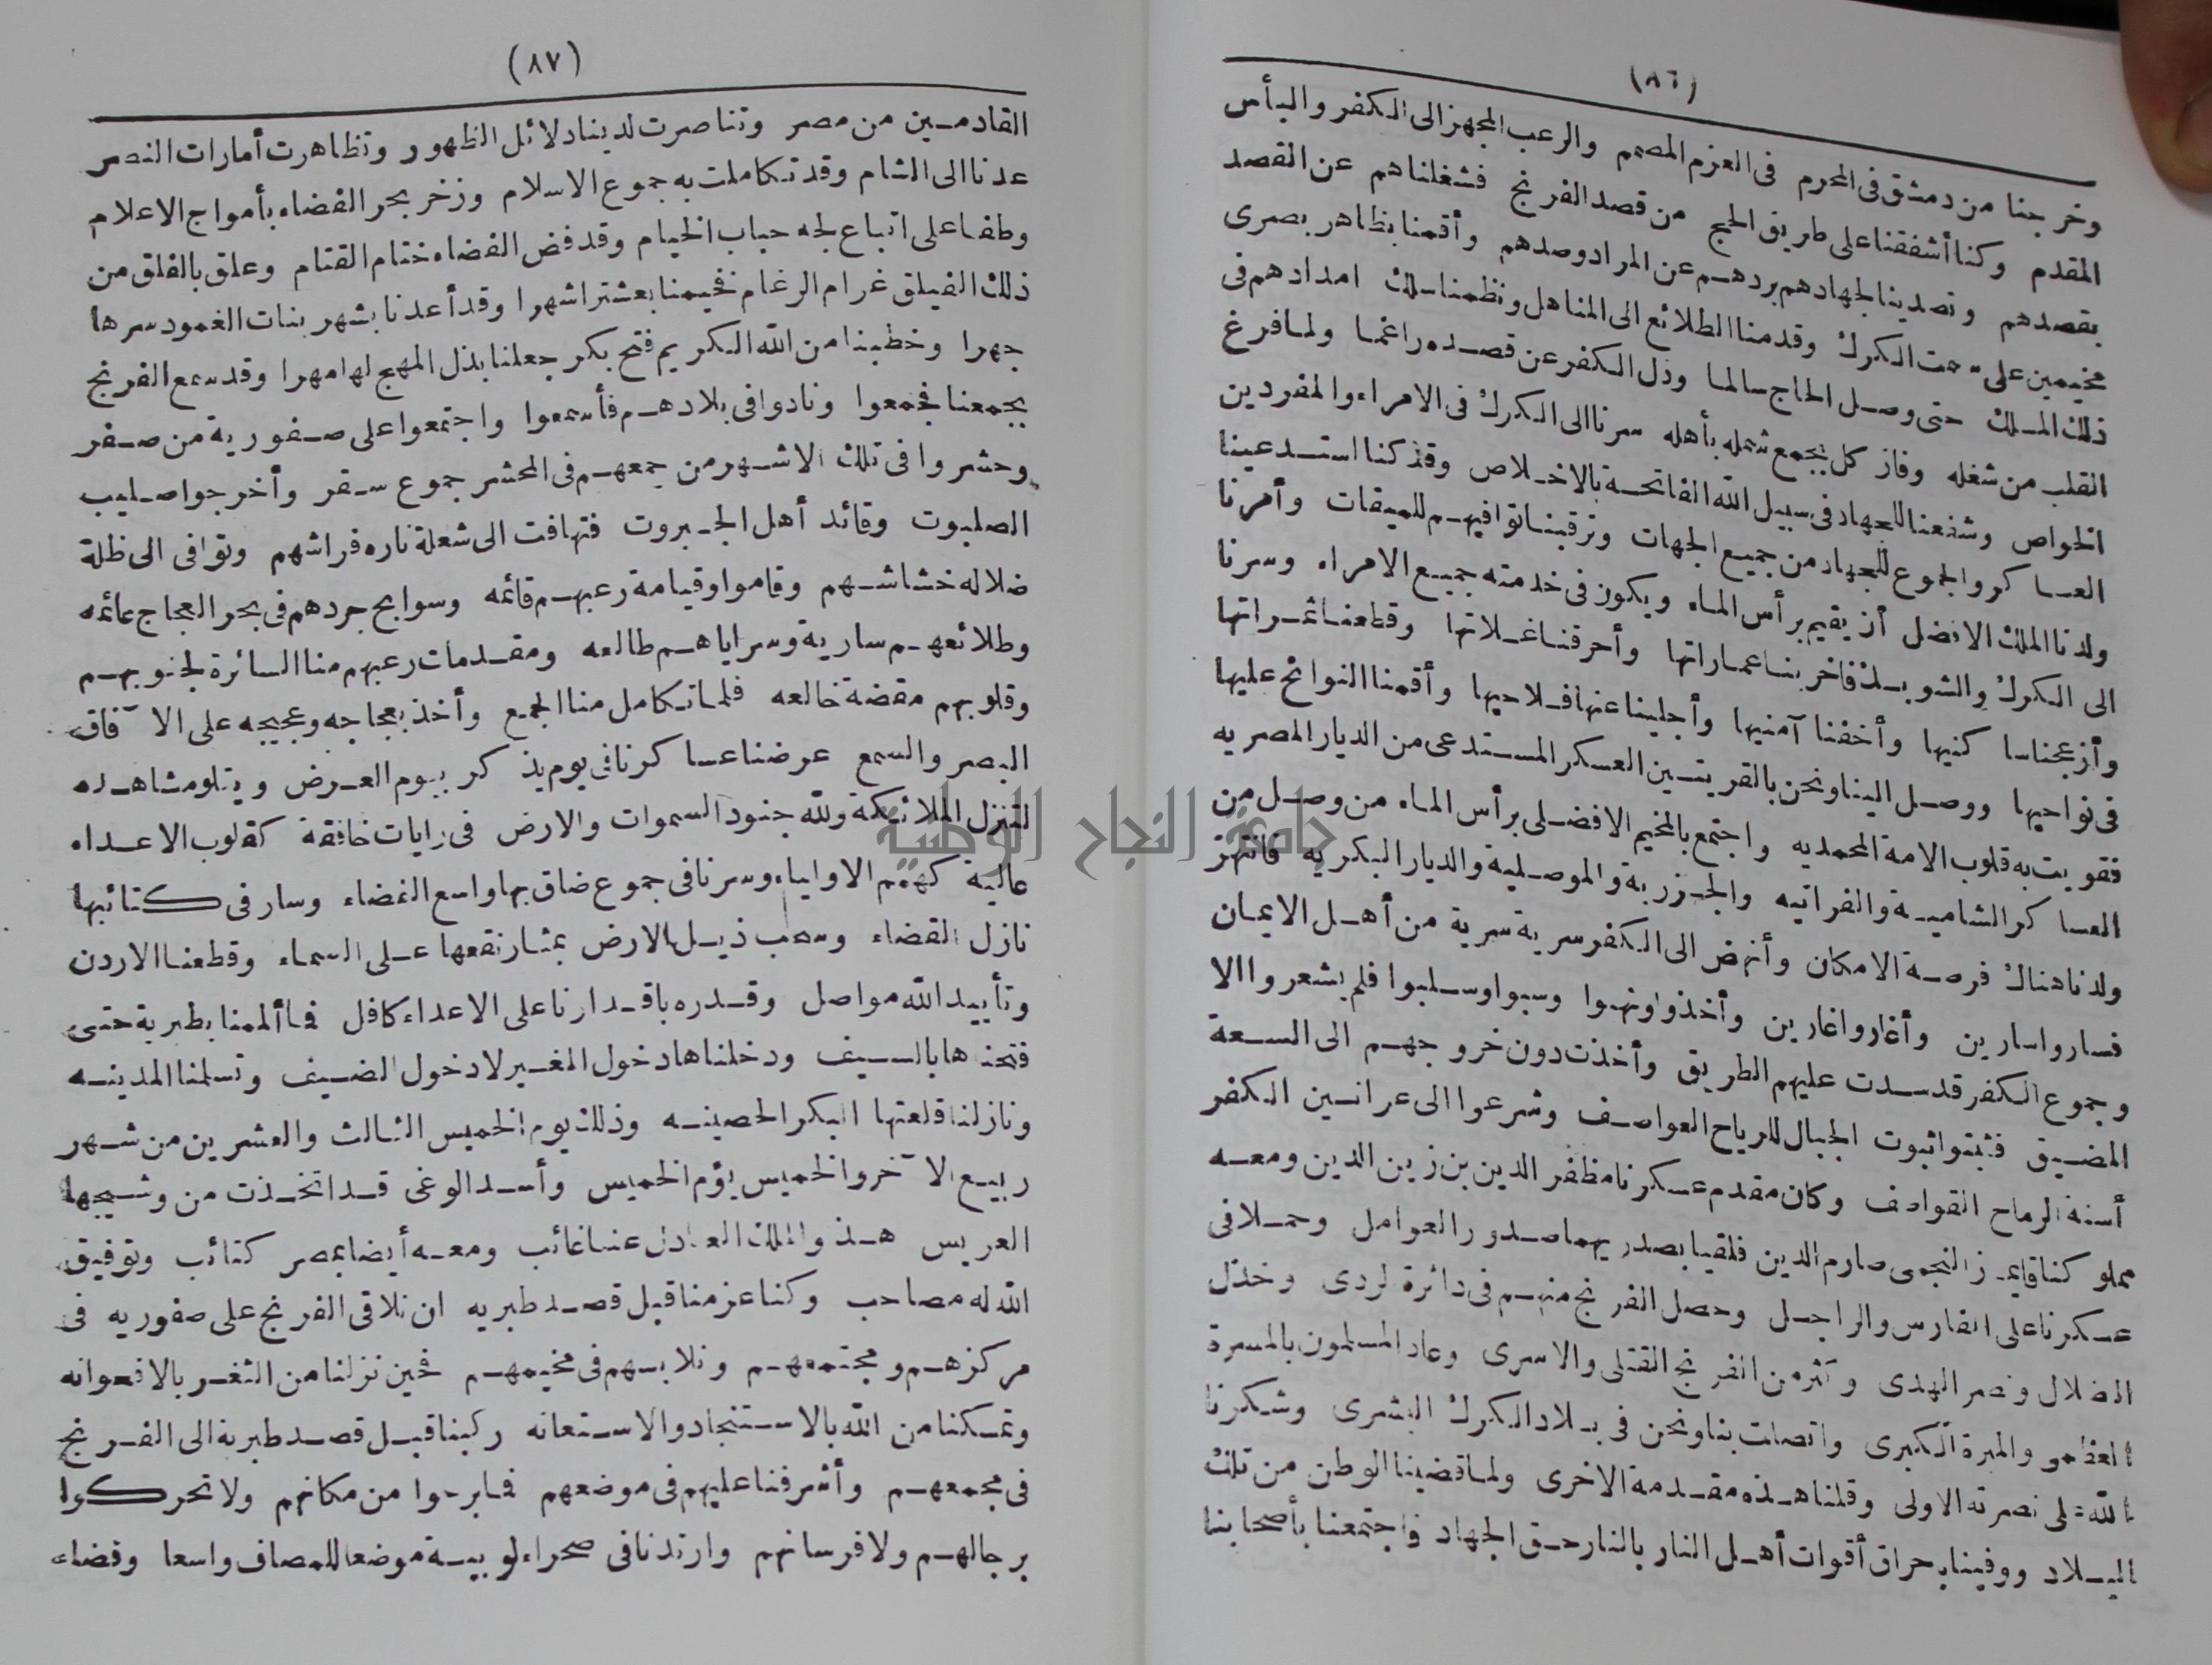 (٨٦)
وخرجنا من دمشق فى المحرم فى العزم المصمم والرعب المجهز الى الكفر والبأس
المقدم وكنا أشفقنا على طريق الحج من قصد الفرنج فشغلناهم عن القصد
بقصدهم وتصدينا لجهادهم بردهم عن المراد وصدهم وأقمنا بظاهر بصرى
مخيمين على سمت الكرك وقدمنا الطلائع الى المناهل ونظمنا سلك امدادهم فى
ذلك المسلك حتى وصل الحاج سالما وذل الكفر عن قصده راغما ولما فرغ
القلب من شغله وفاز كل بجمع شمله بأهله سرنا الى الكرك فى الامراء والمفردين
الخواص وشفعنا للجهاد فى سبيل الله الفاتحة بالاخلاص وقد كنا استدعينا
العساكر والجموع للجهاد من جميع الجهات وترقبنا توافيهم للميقات وأمرنا
ولدنا الملك الافضل أن يقيم برأس الماء ويكون فى خدمته جميع الامراء وسرنا
الى الكرك والشوبك فاخربنا عماراتها وأحرقنا غلاتها وقطعنا ثمراتها
وأزعجنا ساكنيها وأخفنا آمنيها وأجلينا عنها فلاحيها وأقمنا النوائح عليها
فى نواحيها ووصل الينا ونحن بالقريتين العسكر المستدعى من الديار المصريه
فقويت به قلوب الامة المحمديه واجتمع بالمخيم الافضلى برأس الماء من وصل من
العساكر الشامية والفراتيه والجزرية والموصلية والديار البكريه فانتهز
ولدنا هناك فرصة الامكان وأنهض الى الكفر سرية سرية من أهل الايمان
فساروا سارين وأغاروا غارين وأخذوا ونهبوا وسبوا وسلبوا فلم يشعروا الا
وجموع الكفر قد سدت عليهم الطريق وأخذت دون خروجهم الى السعة
المضيق فثبتوا ثبوت الجبال للرياح العواصف وشرعوا الى عرانين الكفر
أسنة الرماح القواصف وكان مقدم عسكرنا مظفر الدين بن زين الدين ومعه
مملوكنا قايماز النجمى صارم الدين فلقيا بصدريهما صدور العوامل وحملا فى
عسكرنا على الفارس والراجل وحصل الفرنج منهم فى دائرة لردى وخذل
الضلال ونصر الهدى وكثر من الفرنج القتلى والاسرى وعاد المسلمون بالمسرة
العظمى والمبرة الكبرى واتصلت بنا ونحن فى بلاد الكرك البشرى وشكرنا
الله على نصرته الاولى وقلنا هذه مقدمة الاخرى ولما قضينا الوطن من تلك
البلاد ووفينا بحراق أقوات أهل النار بالنار حق الجهاد واجتمعنا بأصحابنا
(٨٧)
القادمين من مصر وتناصرت لدينا دلائل الظهور وتظاهرت أمارات النصر
عدنا الى الشام وقد تكاملت به جموع الاسلام وزخر بحر الفضاء بأمواج الاعلام
وطفا على اتباع لجه حباب الخيام وقد فض الفضاء ختام القتام وعلق بالفلق من
ذلك الفيلق غرام الرغام فخيمنا بعشترا شهرا وقد أعدنا بشهر بنات الغمود سرها
جهرا وخطبنا من الله الكريم فتح بكر جعلنا بذل المهج لها مهرا وقد سمع الفرنج
بجمعنا فجمعوا ونادوا فى بلادهم فأسمعوا واجتمعوا على صفورية من صفر
وحشروا فى تلك الاشهر من جمعهم فى المحشر جموع سقر وأخرجوا صليب
الصلبوت وقائد أهل الجبروت فتهافت الى شعلة ناره فراشهم وتوافى الى ظلة
ضلاله خشاشهم وقاموا وقيامة رعبهم قائمه وسوابح جردهم فى بحر العجاج عائمه
وطلائعهم سارية وسراياهم طالعه ومقدمات رعبهم منا السائرة لجنوبهم
وقلوبهم مقضة خالعه فلما تكامل منا الجمع وأخذ بعجاجه وعجيجه على الآفاق
البصر والسمع عرضنا عساكرنا فى يوم يذكر بيوم العرض ويتلو مشاهده
لتنزل الملائكة ولله جنود السموات والارض فى رايات خافقة كقلوب الاعداء
عالية كهمم الاولياء وسرنا فى جموع ضاق بها واسع الفضاء وسار فى كتائبها
نازل القضاء وسحب ذيل الارض بمثار نقعها على السماء وقطعنا الاردن
وتأييد الله مواصل وقدره باقدارنا على الاعداء كافل فما ألممنا بطبرية حتى
فتحناها بالسيف ودخلناها دخول المغير لا دخول الضيف وتسلمنا المدينه
ونازلنا قلعتها البكر الحصينه وذلك يوم الخميس الثالث والعشرين من شهر
ربيع الآخر والخميس يؤم الخميس وأسد الوغى قد اتخذت من وشيجها
العريس هذ والملك العادل عنا غائب ومعه أيضا بمصر كتائب وتوفيق
الله له مصاحب وكنا عزمنا قبل قصد طبريه ان نلاقى الفرنج على صفوريه فى
مركزهم ومجتمعهم ونلابسهم فى مخيمهم فحين نزلنا من الثغر بالاقحوانه
وتمسكنا من الله بالاستنجاد والاستعانه ركبنا قبل قصد طبرية الى الفرنج
فى مجمعهم وأشرفنا عليهم فى موضعهم فما برحوا من مكانهم ولا تحركوا
برجالهم ولا فرسانهم وارتدنا فى صحراء لوبية موضعا للمصاف واسعا وفضاء
جامعة النجاح الوطنية